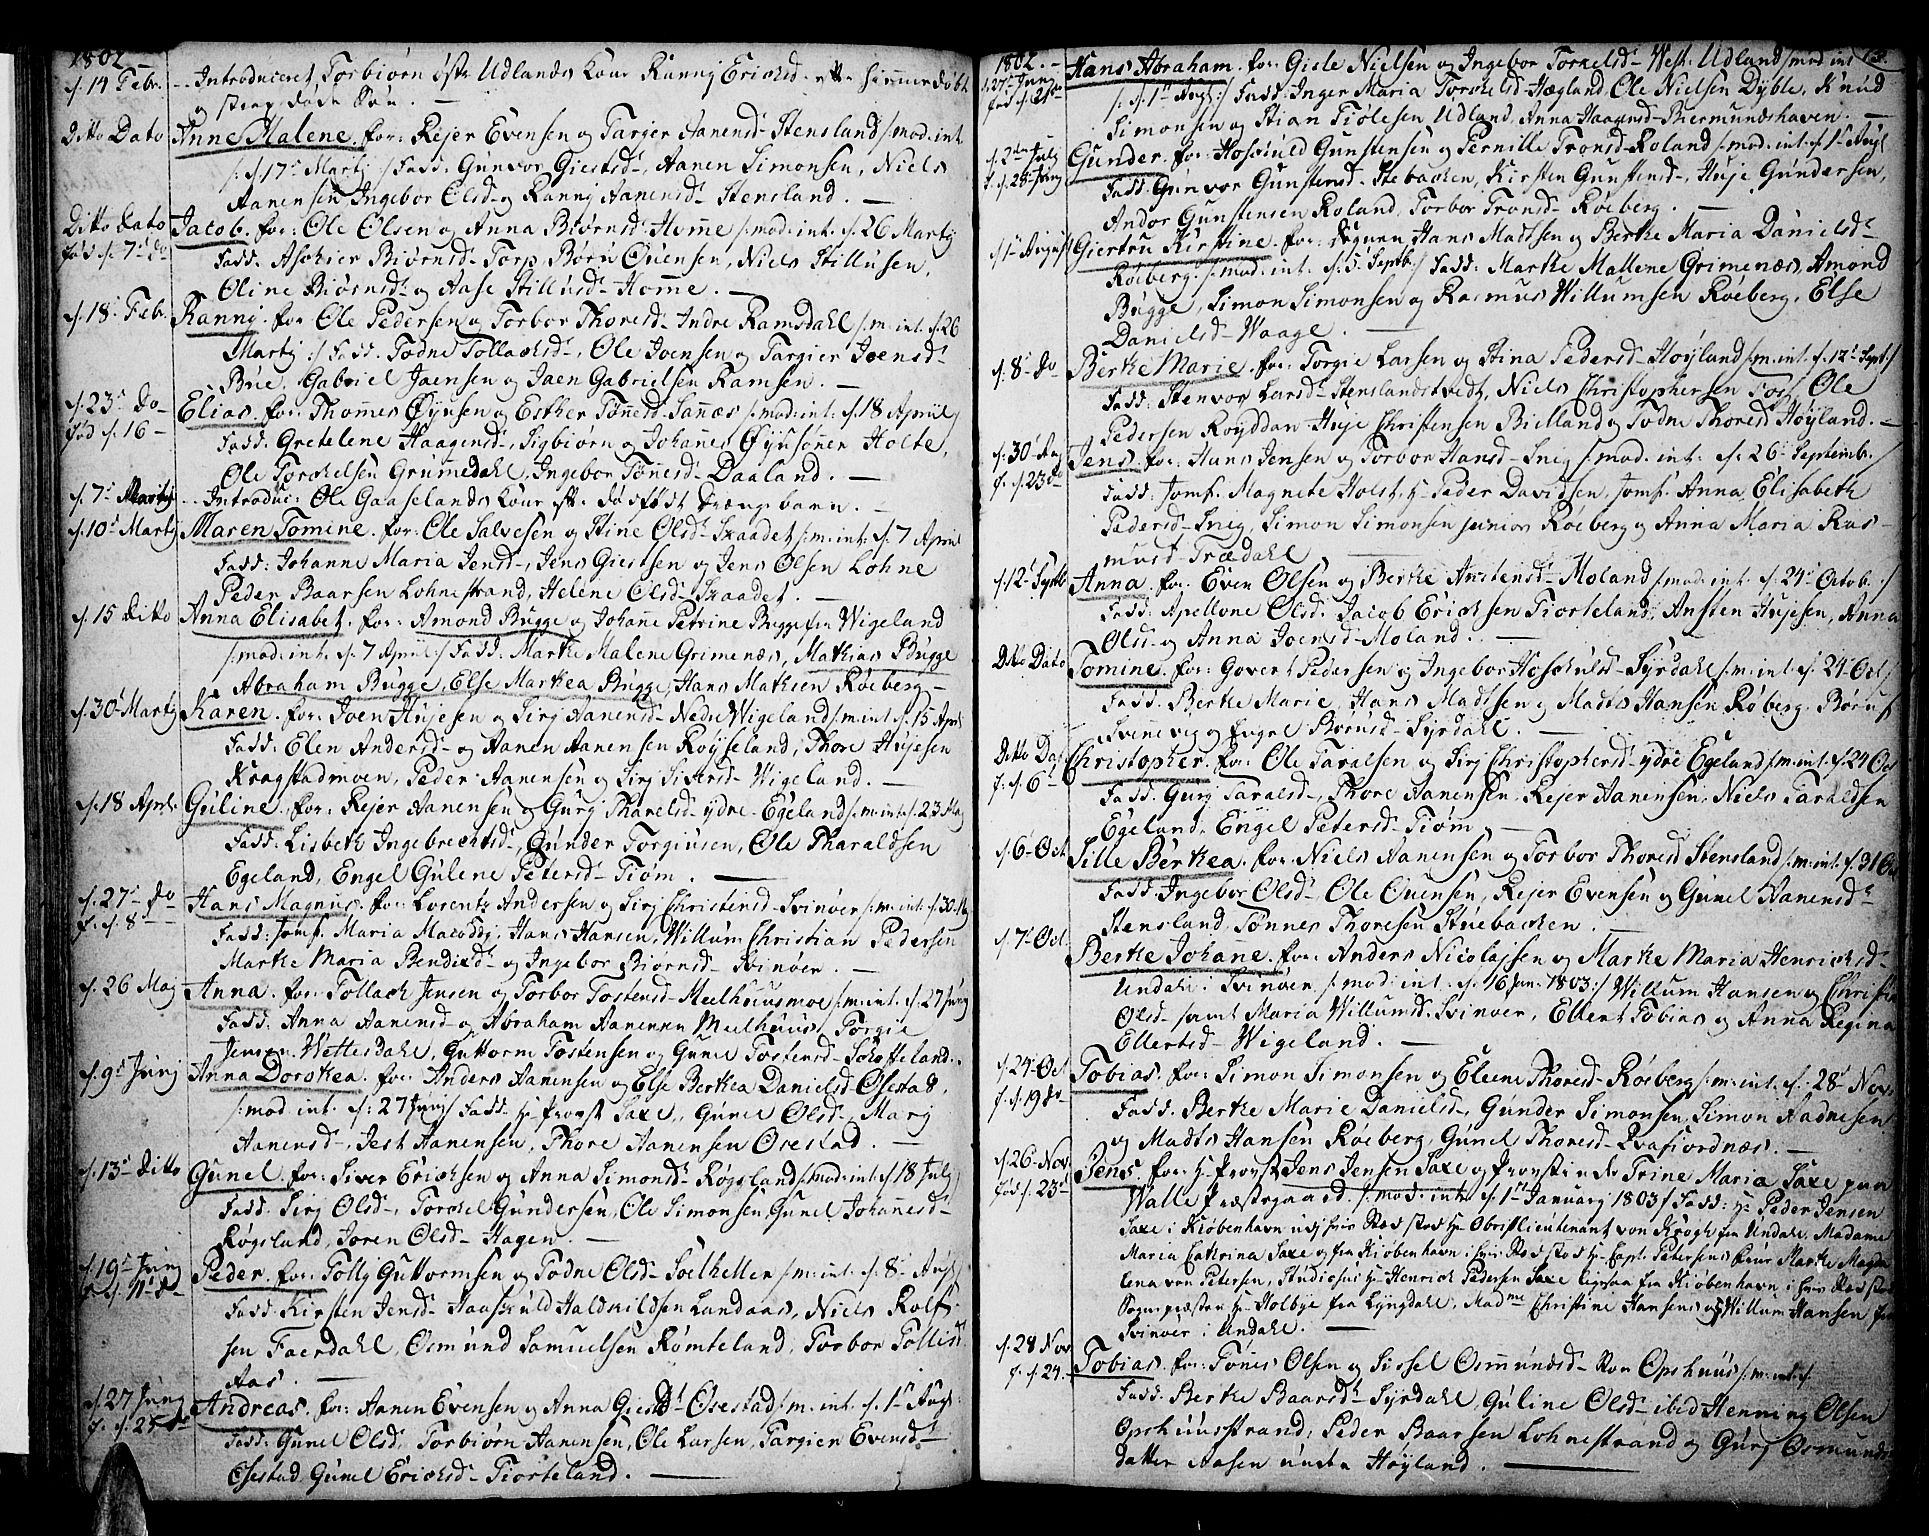 1802
d. 14 Febr. - Introduceret Torbiørn østr Udlands Kone Ranny Erichsd. efter hiemmedøbt
og strax døde Søn. -
Ditto Dato Anne Malene. for: Rejer Evensen og Targier Aanensd. Stensland /: mod: int
d. 17 Martj :/ Fadd: Gunvor Giestsd., Aanen Simonsen, Niels
Aanensen Ingebor Elsd. og Ranny Aanensd. Stensland. -
Ditto Dato Jacob. for: Ole Olsen og Anna Biørnsd. Homme /: mod: int: d. 26 Martj
fød d. 7 do Fadd: Aschier Biørnsd. Torp, Børu Ouensen, Niels Stillusen,
Oline Biørnsd. og Aase Stillusd. Homme. -
d. 18 Febr. Ranny. for Ole Pedersen og Torbor Thoresd. Indre Ramsdahl /: m: int: d. 26
Martj :/ Fadd. Todne Tollachsd., Ole Joensen og Targier Joensd.
Bue, Gabriel Jaensen og Jaen Gabrielsen Ramsen. -
d. 23 do Elias. for: Thomes Øynsen og Esther Tønesd. Sanæs /: mod: int: d. 18 Apriil
fød d. 16 - Fadd: Gretelene Haagensd., Sigbiørn og Johanes Øynsøner Holte,
Ole Torchelsen Grumedahl, Ingebor Tønesd. Daaland. -
d. 7 Martj - Introduc: Ole Gaaselands Kone eft. dødfødt Drengebarn. -
d. 10 Martj Maren Tomine. for: Ole Salvesen og Stine Olsd. Skaadet /: m: int: d. 7 April
Fadd: Johanne Maria Jensd., Jens Giestsen og Jens Olsen Lohne
Peder Baarsen Lohnestrand, Helene Olsd. Skaadet. -
d. 15 ditto Anna Elisabet. for: Amond Bugge og Johane Petrine Bugge fra Wigeland
/: mod: int. d. 7 April :/ Fadd: Marthe Malene Grimenæs, Mathias Bugge
Abraham Bugge, Else Marthea Bugge, Hans Mathsen Røeberg -
d. 30 Martj Karen. for: Joen Hujesen og Sirj Aanensd. Nedre Wigeland /: m: int d. 15 Apr.
Fadd: Elen Andersd. og Aanen Aanensen Royseland, Thore Hujesen
Kragstadmoen, Peder Aanensen og Sirj Sivertsd. Wigeland. -
d. 18 Apr. Guline. for: Rejer Aanensen og Gurj Tharelsd. ydre Egeland /: m: int: d. 23 Maj
Fadd: Lisbeth Ingebrechtsd., Gunder Torgiusen, Ole Tharaldsen
Egeland, Engel Gulene Petersd. Tiøm. -
d. 27 do Hans Magnus. for: Lorentz Andersen og Sirj Christensd. Svinøer /: m: int: d. 30
f. d. 8 Fadd: Jomf. Maria Macoddy, Hans Hansen, Willum Christian Pedersen
Marthe Maria Bendixd. og Ingebor Biørnsd. Svinøer. -
d. 26 Maj Anna. for: Tollach Jensen og Torbor Tostensd. Meelhuusmoe /: m: int: d. 27 Junj
Fadd: Anna Aanensd. og Abraham Aanensen Meelhuus, Torgie
Jensen Wettesdahl, Guttorm Tostensen og Gunel Tostensd. Schotteland. -
d. 9 Junj Anna Dorthea. for: Anders Aanensen og Else Berthea Danielsd. Osestad
/: mod int. d: 27 Junj / Fadd. Hr. Provst Saxe, Gunel Olsd., Marj
Aanensd., Jest Aanensen, Thore Aanensen Osestad. -
d. 13 Ditto Gunel. for: Siver Erichsen og Anna Simonsd. Røgsland /: mod: int: d. 18 July
Fadd: Sirj Olsd., Torchel Gundersen, Ole Simonsen, Gunel Johanesd.
Røgsland, Soren Olsd. Hagen. -
d. 19 Junj Peder. for: Tollj Guttormsen og Todne Olsd. Soelhelle /: m: int. d. 8 Aug
f. d. 11 do Fadd: Kirsten Jensd. Haaschuld Haldvildsen Landaas, Niels Rolf-
sen Faerdahl, Osmund Samuelsen Rømteland, Torbor Tollisd.
Aas. -
d. 27 Junj Andreas. for: Aanen Evensen og Anna Giestd. Osestad /: m: int. d. 1 Aug
f. d. 25 Fadd: Gunel Olsd., Torbiørn Aanensen, Ole Larsen, Targier Evensd.
Osestad, Gunel Erichsd. Tiorteland. -
1802. -
d. 27 Junj Hans Abraham. for: Gisle Nielsen og Ingebor Torkelsd. West. Udland /: mod: int
fød d. 21 /: d. 1 Augl :/ Fadd: Inger Maria Torchelsd. Hægland, Ole Nielsen Dyble, Knud
Simonsen og Stian Tiølesen Udland, Anna Haagensd. Biermundshaven. -
d. 2 July Gunder. for: Hoschuld Gunstensen og Pernille Tronsd. Roland /: mod: int: d. 1 Augl
f. d. 28 Junj Fadd: Gunvor Gunstensd. Stebachen, Kirsten Gunstensd., Huje Gundersen,
Andor Gunstensen Roland, Torbor Tronsd. Røeberg. -
d. 1 August Giertru Kirstine. for: Hans Madtsen og Berthe Maria Danielsd.
Røeberg. /: mod: int. d. 5 Septb. :/ Fadd: Marthe Mallene Grimenæs, Amond
Bugge, Simon Simonsen og Rasmus Willumsen Røeberg, Else
Danielsd. Waage. -
d. 8 do Berthe Marie. for: Torgie Larsen og Stina Pedersd. Høyland /: m: int. d. 12 Sept:/
Fadd: Stenvor Larsd. Stenslandstvedt, Niels Christophersen Foss, Ole
Pedersen Royddan, Huje Christensen Bielland og Todne Thoresd. Høyland. -
d. 30 Aug Jens. for: Hans Jensen og Torbor Hansd. Sneg /: mod: int: d. 26 Septemb:/
f. d. 23 do Fadd: Jomf. Magnete Holst, Hr. Peder Davidsen, Jomf. Anna Elisabeth
Pedersd. Sneg, Simon Simonsen junior Røeberg og Anna Maria Ras-
musd. Trædahl -
d. 12 Septb Anna. for: Even Olsen og Berthe Anstensd. Moland /: mod: int. d. 24 Octob. :/
Fadd: Apellone Olsd. Jacob Erichsen Tiorteland, Ansten Hujesen, Anna
Olsd. og Anna Joensd. Moland. -
Ditto Dato Tomine. for: Govert Pedersen og Ingebor Hoschulsd. Syrdahl /: m: int d. 24 Oct /
Fadd: Berthe Marie, Hans Madtsen og Madts Hansen Røberg. Børu
Svinevig og Engel Børusd. Syrdahl. -
Ditto Dat Christopher. for: Ole Taralsen og Sirj Christophersd. ydre Egeland /: m: int: d. 24 Oct
f. d. 6 Fadd: Gurj Taralsd., Thore Aanensen, Rejer Aanensen, Niels Taraldsen
Egeland, Engel Petersd. Tiøm. -
d. 6 Oct. Sille Berthea. for: Niels Aanensen og Torbor Thoresd. Stensland /: m: int: d. 31 Oct
Fadd: Ingebor Olsd. Ole Ouensen, Rejer Evensen og Gunel Aanensd.
Stensland, Tønnes Thoresen Stuebachen. -
d. 7 Oct. Berthe Johane. for: Anders Nicolajsen og Marthe Maria Henrichsd.
Undahl Svinøer /: mod: int. d. 16 Jan. 1803 :/ Willum Hansen og Christi
Olsd. samt Maria Willumsd. Svinøer, Ellert Tobias og Anna Regina
Ellertsd. Wigeland. -
d. 24 Oct Tobias. for: Simon Simonsen og Eleene Thoresd. Røeberg /: m: int. d. 28 Nov.
f. d. 19 do Fadd: Berthe Marie Danielsd., Gunder Simonsen, Simon Aadnesen
og Madts Hansen Røeberg, Gunel Thoresd. Qvafiordnæs. -
d. 26 Nov. Jens. for: Hr. Provst Jens Jensen Saxe og Provstinde Trine Maria Saxe paa
fød d. 23 Walle Præstegaard. /: mod: int: d. 1 January 1803 / Fadd: Hr. Peder Jensen
Saxe i Kiøbenhavn udj hans Sted stod Hr. Obristlieutenant von Krogh fra Undahl, Madame
Maria Cathrina Saxe og fra Kiøbenhavn i hvis Sted stod Hr. Capt. Petersens Frue Marthe Magda
lena von Petersen, Studiosus Hr. Henrich Pedersen Saxe ligesaa fra Kiøbenhavn i hvis Sted stod
Sognepræsten Hr. Holbye fra Lyngdahl, Madme Christine Hansens og Willum Hansen fra
Svinøer i Undahl. -
d. 28 Nov Tobias. for: Tønes Olsen og Sissel Osmundsd. Opshuus /: m: int: d.
f. d. 24. Fadd: Berthe Baarsd. Syrdahl, Guline Olsd. ibid Henning Olsen
Opshuusstrand, Peder Baarsen Lohnestrand og Gurj Osmunds
datter Aasen Høyland. -